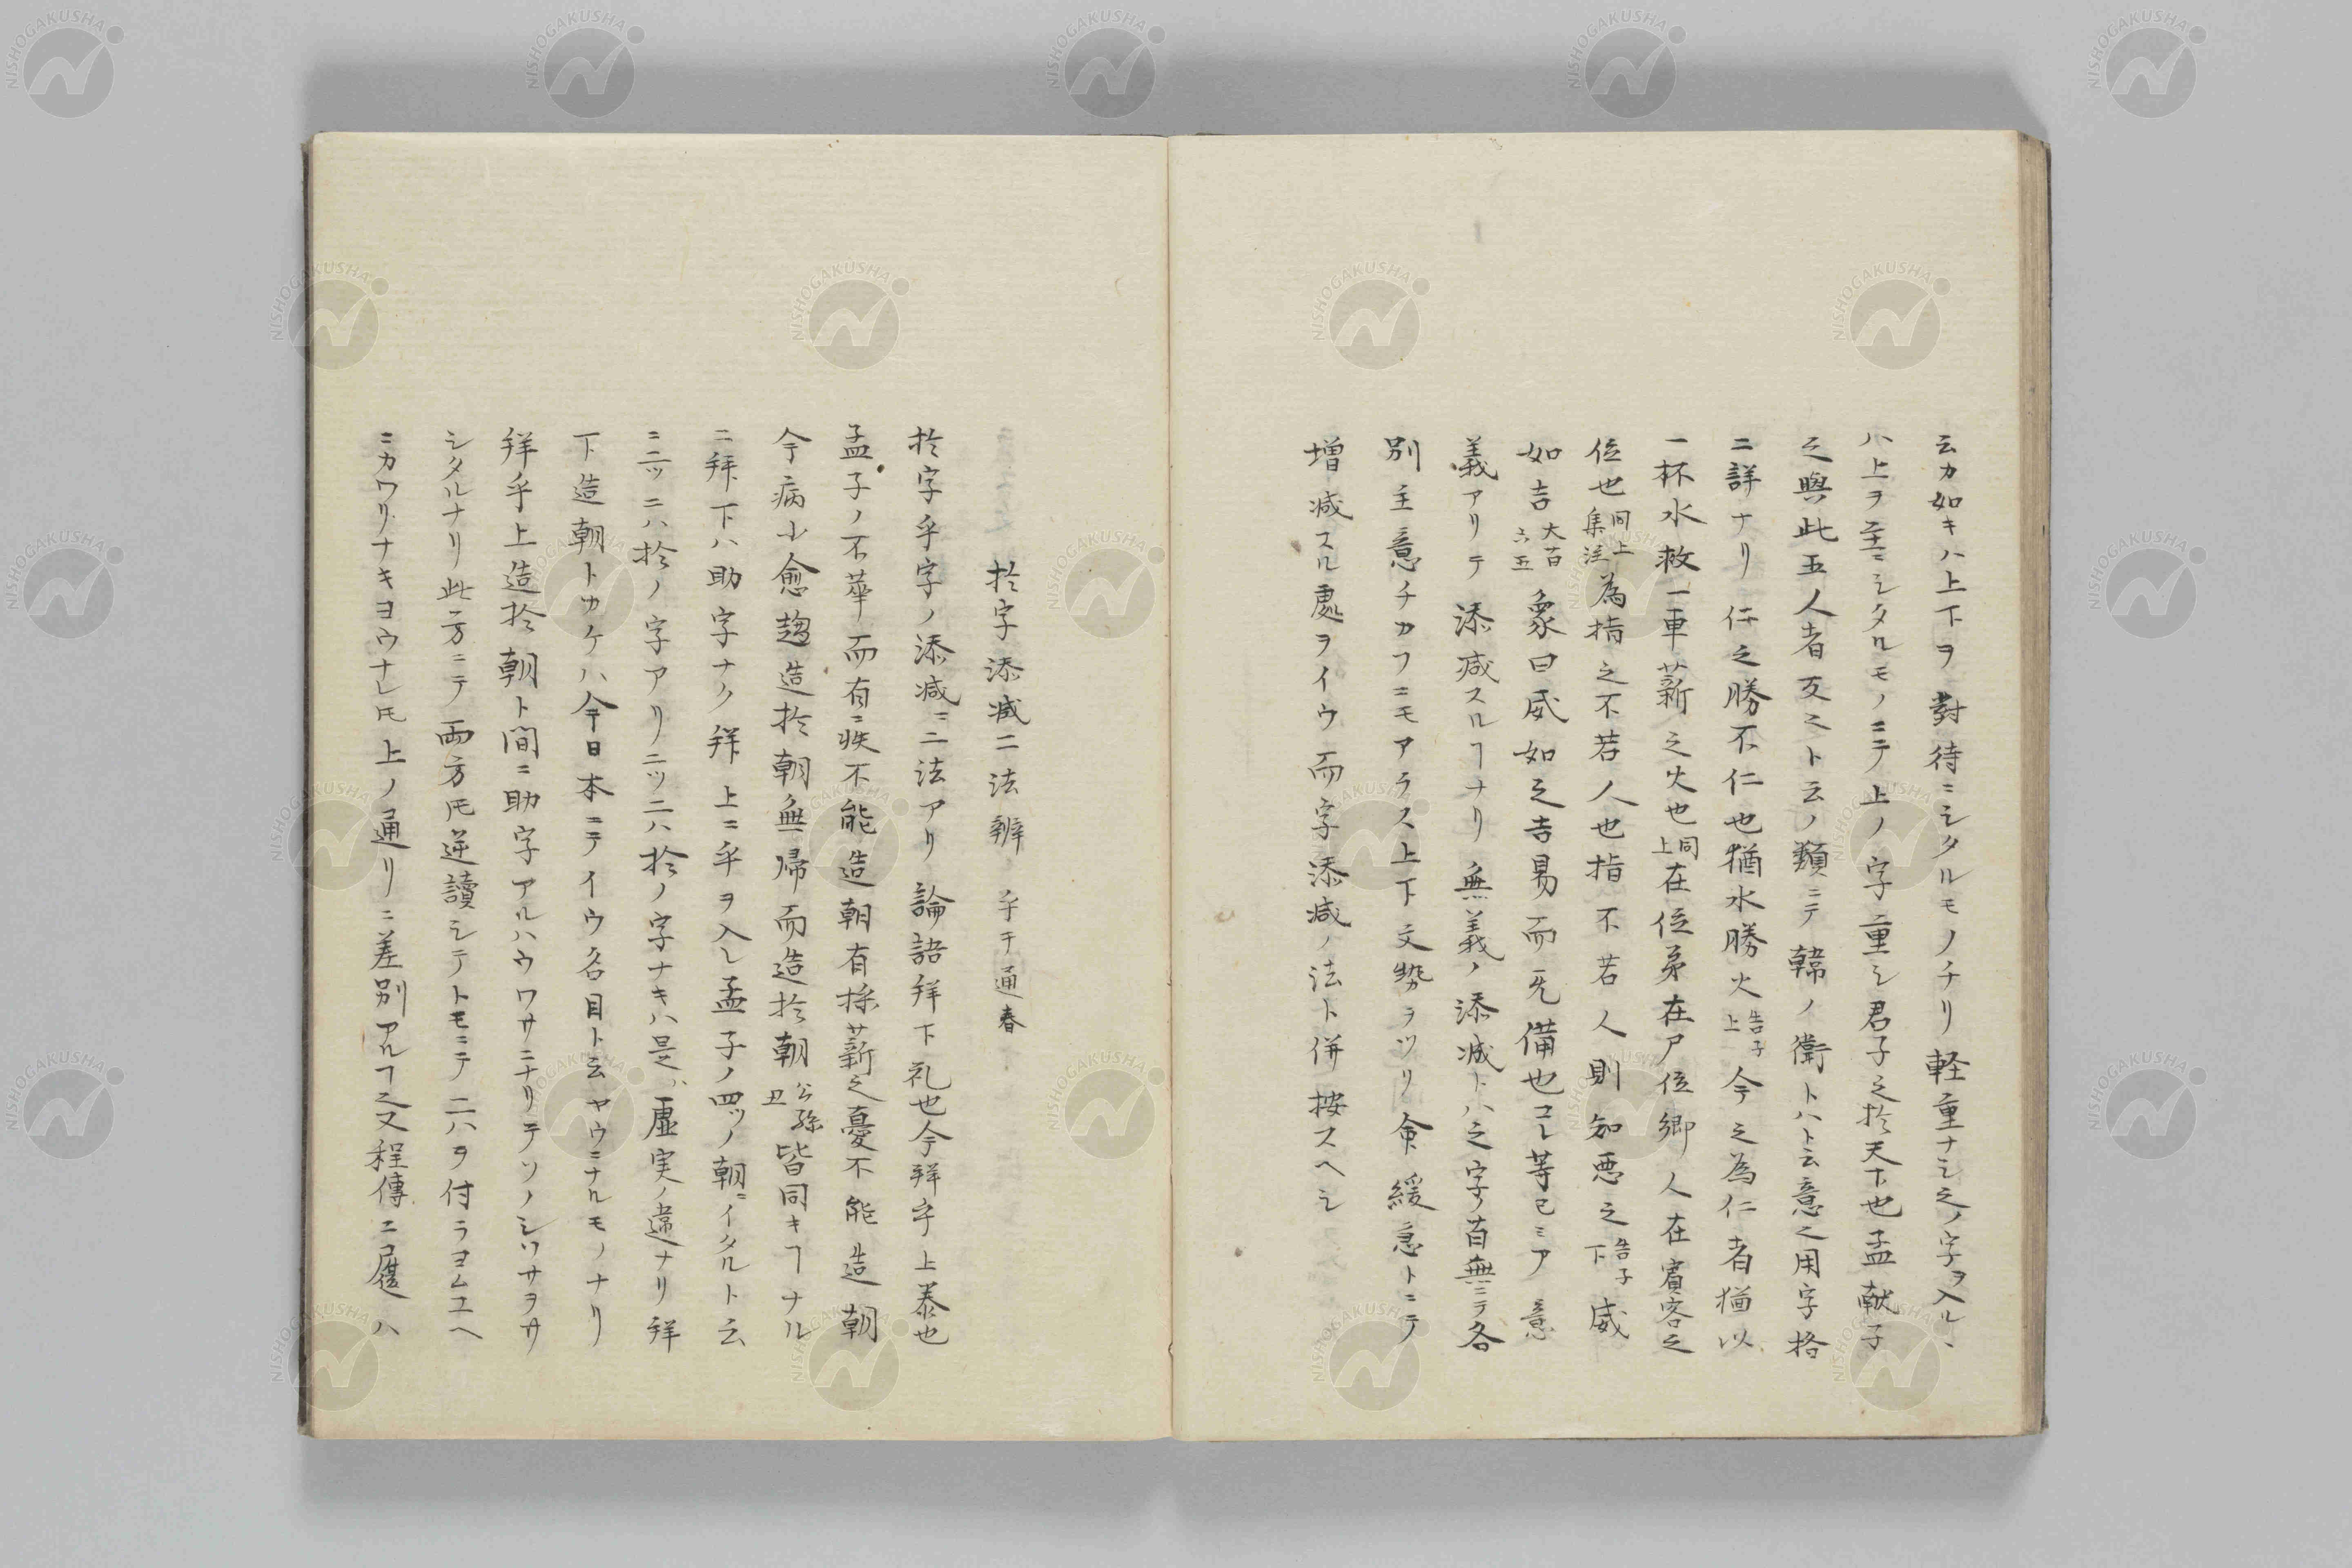 云カ如キハ上下ヲ對待ニシタルモノナリ軽重ナシ之ノ字ヲ入ル、
ハ上ヲ主ニシタルモノニテ上ノ字重シ君子之於天下也孟献子
之與此五人者友之ト云ノ類ニテ韓ノ衛トハト云意之用字格
ニ詳ナリ仁之勝不仁也猶水勝火告子上今之為仁者猶以
一杯水救一車薪之火也同上在位弟在尸位郷人在賓客之
位也同上集注為指之不若人也指不若人則知悪之告子下威
如吉大百六五象曰威如之吉易而无備也コレ等已ミア意
義アリテ添減スルヿナリ無義ノ添減トハ之字ノ有無ニテ各
別主意チカフニモアラス上下文勢ヲツリ合緩急トニテ
増减スル處ヲイウ而字添减ノ法ト併按スヘシ
於字添减二法辨 乎于通春
於字乎字ノ添减ニ二法アリ論語拜下礼也今拜乎上泰也
孟子ノ不幸而有疾不能造朝有採薪之憂不能造朝
今病小愈趨造於朝無帰而造於朝公孫丑皆同キヿナル
ニ拜下ハ助字ナク拜上ニ乎ヲ入レ孟子ノ四ツノ朝ニイタルト云
ニ二ツニハ於ノ字アリ二ツニハ於ノ字ナキハ是虚実ノ違ナリ拜
下造朝トカケハ今日本ニテイウ名目ト云ヤウニナルモノナリ
拜乎上造於朝ト間ニ助字アルハウワサニナリテソノシワサヲサ
シタルナリ此方ニテ両方氏逆讀シテトモニテニハヲ付ラヨムユヘ
ニカワリナキヨウナレ氏上ノ通リニ差別アルヿ之又程傳ニ履ハ